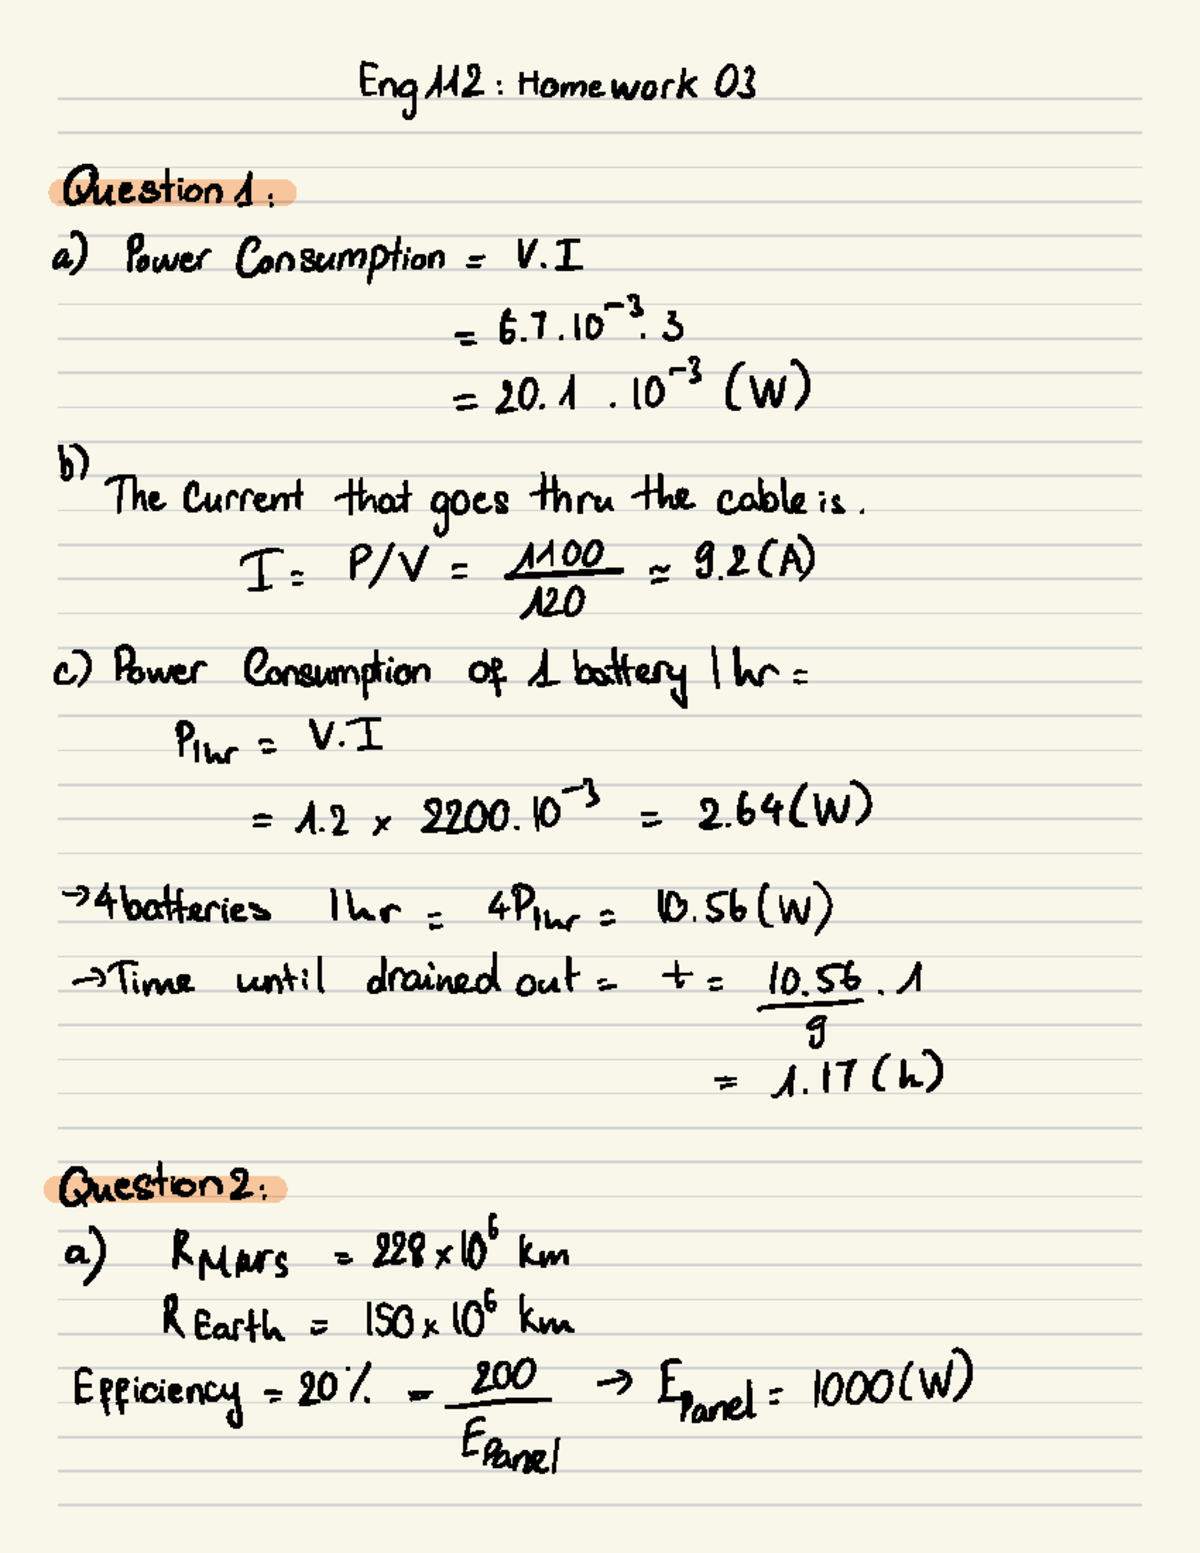 Eng 112 : Homework 03
Question 1 :
a) Power Consumption = V.I
= 6.7.10^-3 . 3
= 20.1 . 10^-3 (W)
b)
The Current that goes thru the cable is.
I = P/V = 1100/120 ≈ 9.2 (A)
c) Power Consumption of 1 battery 1 hr =
P1hr = V.I
= 1.2 × 2200.10^-3 = 2.64 (W)
→ 4 batteries 1 hr = 4P1hr = 10.56 (W)
→ Time until drained out = t = 10.56/9 . 1
= 1.17 (h)
Question 2 :
a) RMars = 228 × 10^6 km
REarth = 150 × 10^6 km
Efficiency = 20% = 200/EPanel → EPanel = 1000 (W)